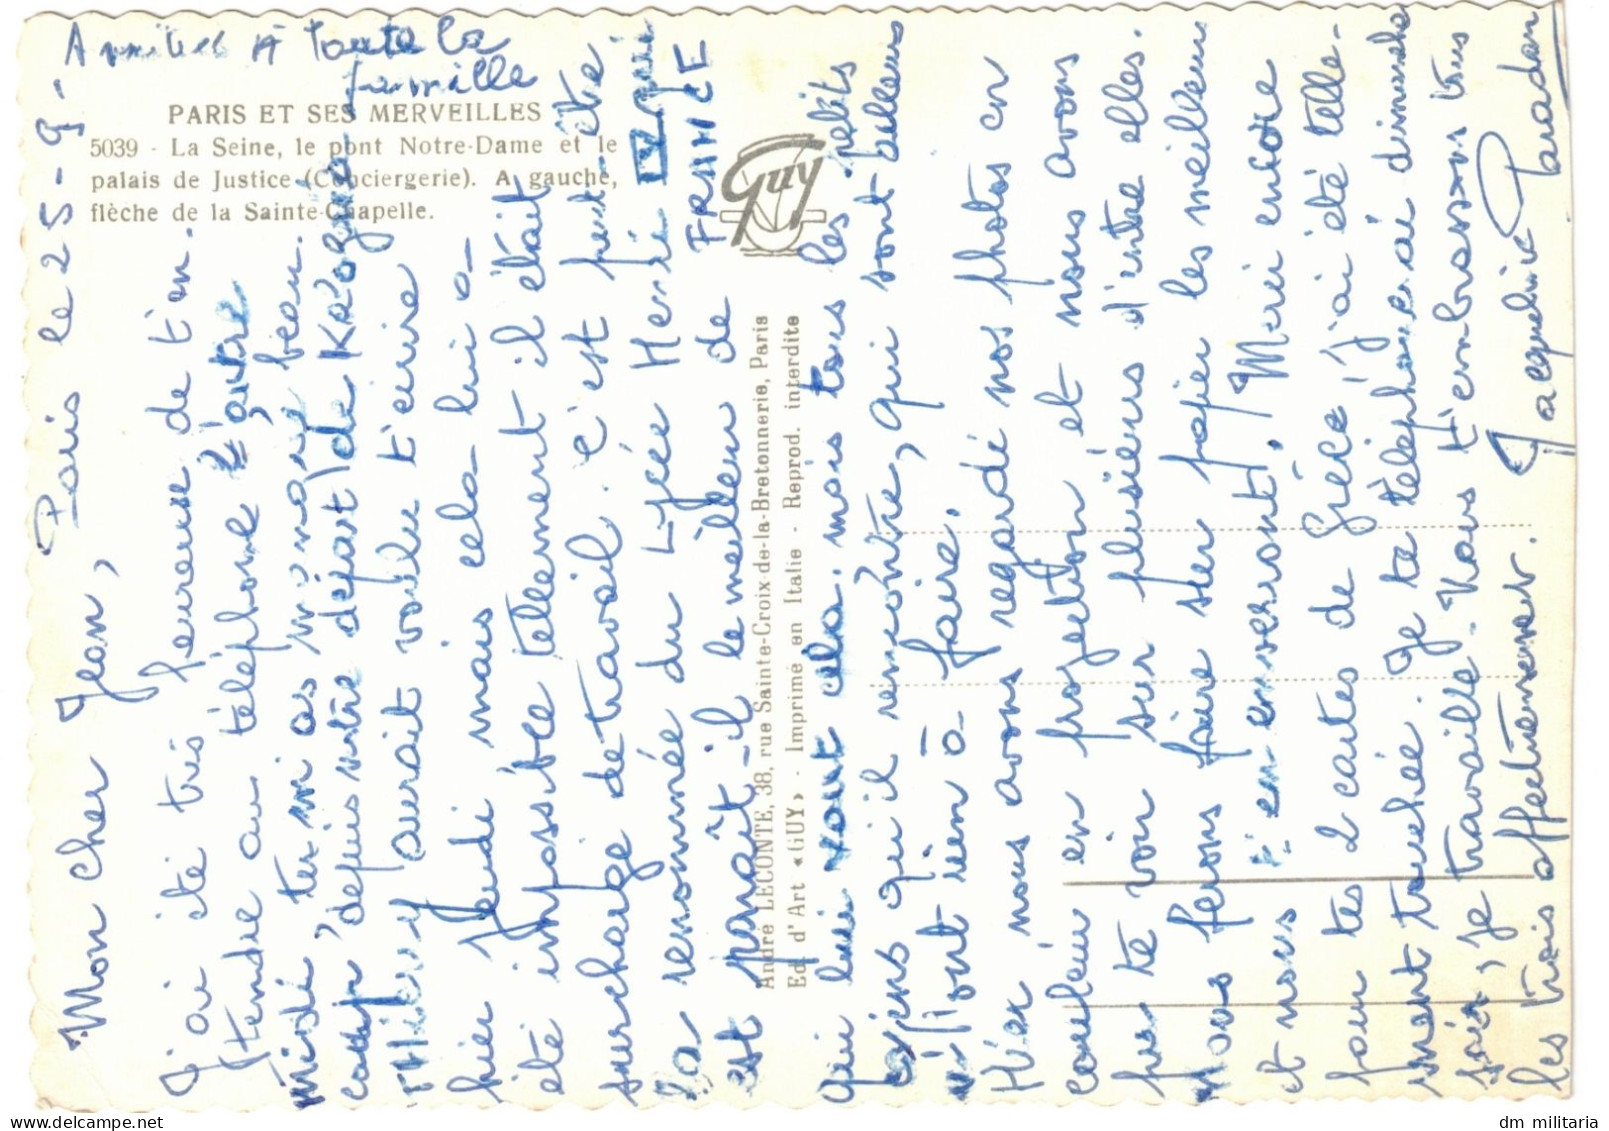 Amitiés A toute la
famille
PARIS ET SES MERVEILLES
5039 - La Seine, le pont Notre-Dame et le
palais de Justice (Conciergerie). A gauche,
flèche de la Sainte-Chapelle.
Guy
André LECONTE, 38, rue Sainte-Croix-de-la-Bretonnerie, Paris
Ed. d'Art «GUY» - Imprimé en Italie - Reprod. interdite
Paris le 25-9-
Mon cher Jean,
J'ai été très heureuse de t'en
tendre au téléphone l'autre
midi, tes m'as manqué beau
coup, depuis votre départ de
Thierry aurait voulu t'écrire
hier jeudi mais cela lui a
été impossible tellement il était
surchargé de travail. C'est peut-être
la renommée du Lycée Henri IV qui
est paraît-il le meilleur de FRANCE
qui lui vaut cela, mais tous les petits
copains qu'il rencontre, qui sont ailleurs
n'ont rien à faire.
Hier nous avons regardé nos photos en
couleur en projection et nous avons
pu te voir sur plusieurs d'entre elles.
Nous ferons faire sur papier les meilleurs
et nous t'en enverront. Merci encore
pour tes 2 cartes de Grèce, j'ai été telle-
ment touchée. Je te téléphonerai dimanche
soir, je travaille. Nous t'embrassons tous
les trois affectueusement. Jacqueline
dm militaria